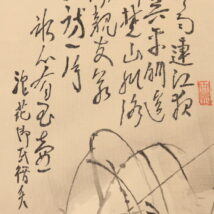 雨連江夜
吳平明送
楚山孤洛
親友如
問一片
氷心在玉壺